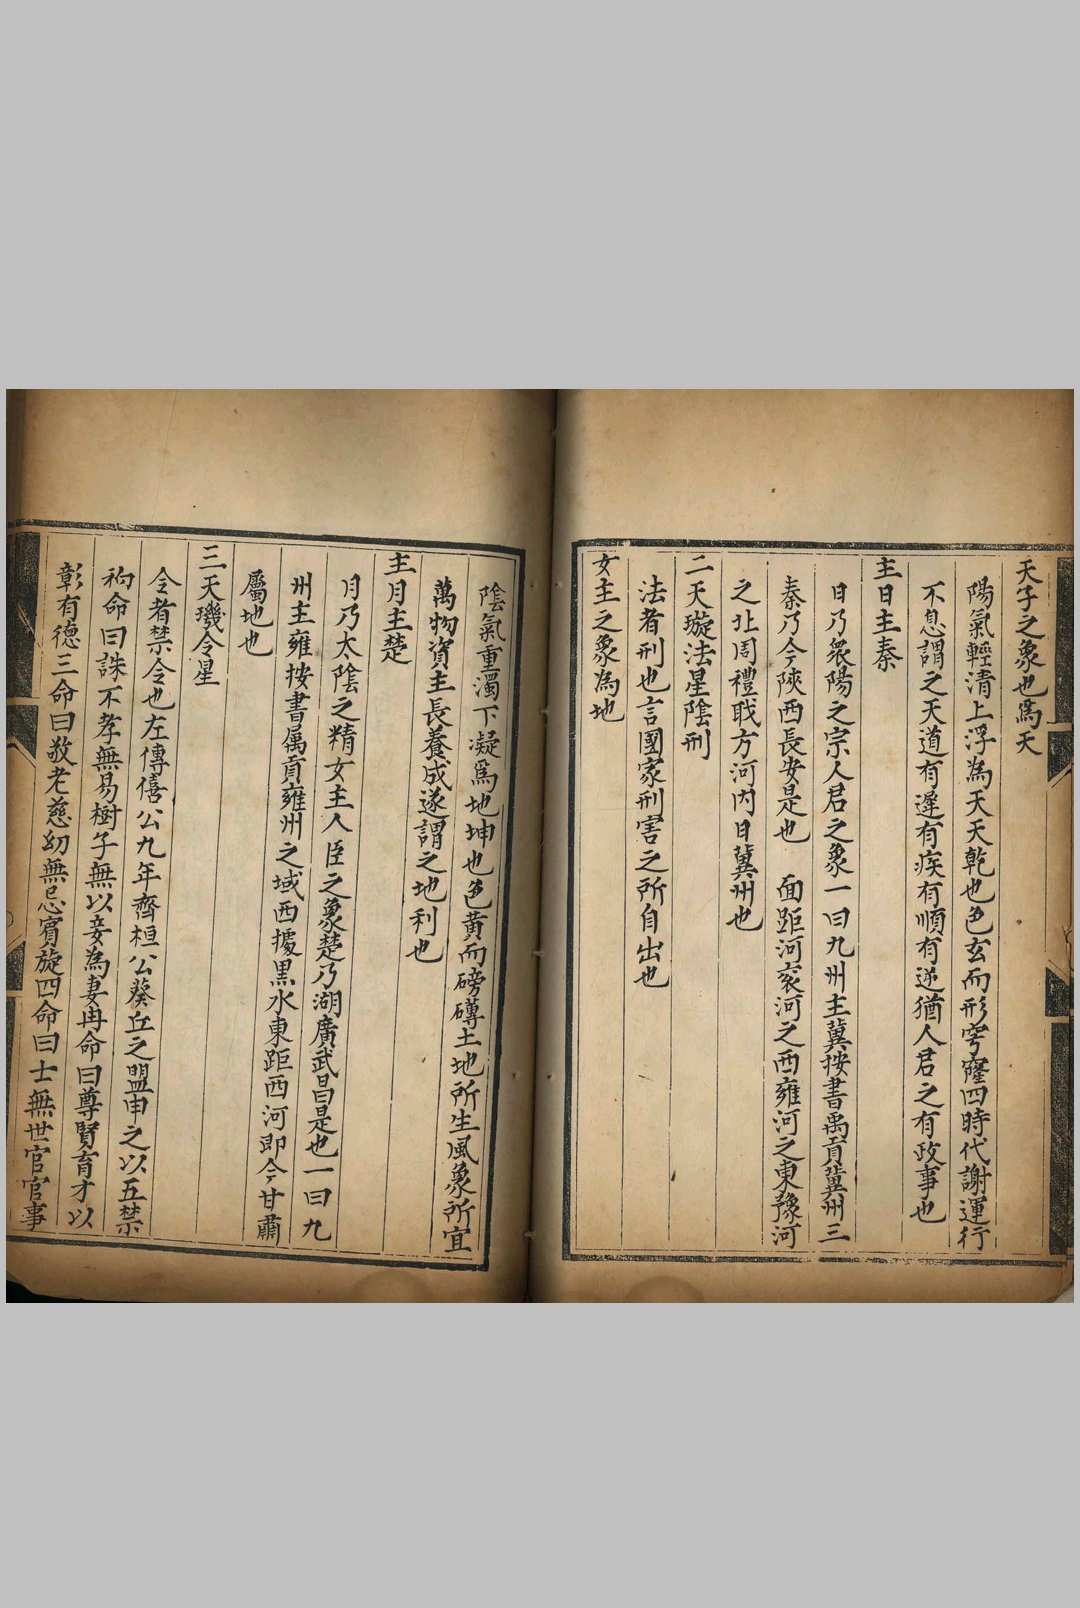 天子之象也為天
陽氣輕清上浮為天天乾也色玄而形穹窿四時代謝運行
不息謂之天道有遲有疾有順有逆猶人君之有政事也
主日主秦
日乃衆陽之宗人君之象一曰九州主冀按書禹貢冀州三
秦乃今陝西長安是也 面距河兖河之西雍河之東豫河
之北周禮職方河内曰冀州也
二天璇法星陰刑
法者刑也言國家刑害之所自出也
女主之象為地
陰氣重濁下凝爲地坤也色黄而磅礴土地所生風象所宜
萬物資主長養成遂謂之地利也
主月主楚
月乃太陰之精女主人臣之象楚乃湖廣武昌是也一曰九
州主雍按書属貢雍州之域西據黒水東距西河即今甘肅
屬地也
三天璣令星
令者禁令也左傳僖公九年齊桓公葵丘之盟申之以五禁
初命曰誅不孝無易樹子無以妾為妻冉命曰尊賢育才以
彰有德三命曰敬老慈幼無忘賓旋四命曰士無世官官事